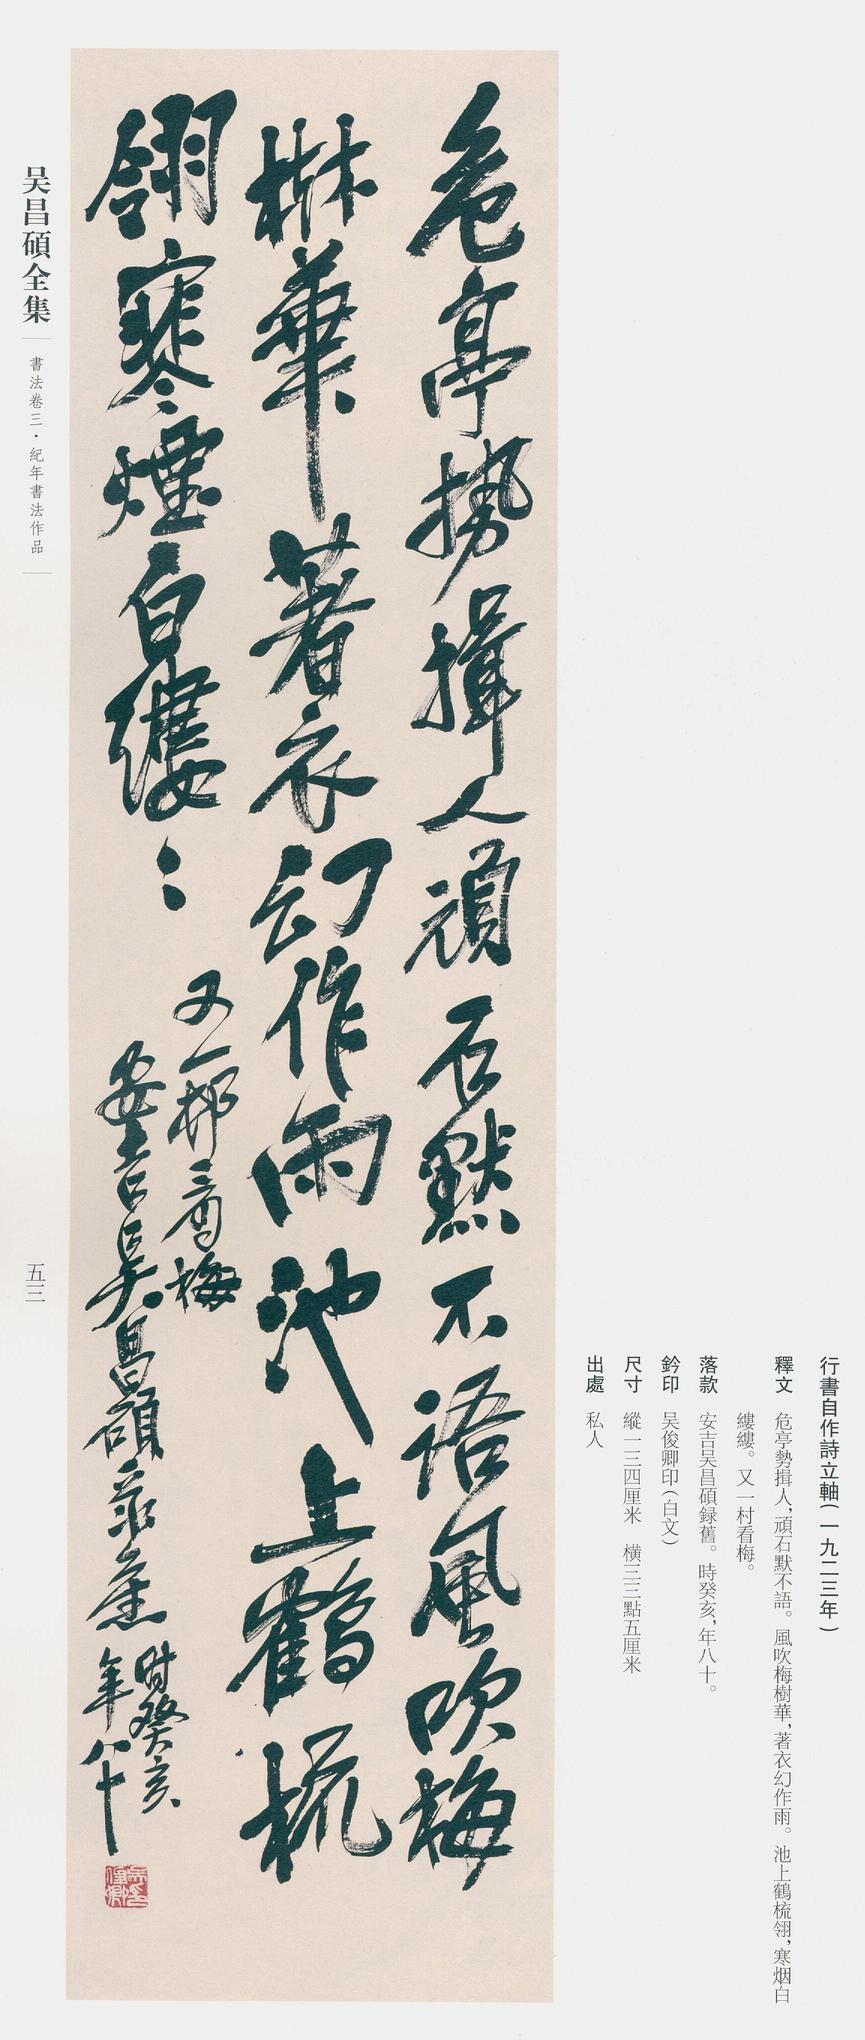 行書自作詩立軸(一九二三年)
釋文 危亭勢揖人,頑石默不語。風吹梅樹華,著衣幻作雨。池上鶴梳翎,寒烟白
縷縷。又一村看梅。
落款 安吉吴昌碩録舊。時癸亥,年八十。
鈐印 吴俊卿印(白文)
尺寸 縱一三四厘米 横三三點五厘米
出處 私人
危亭勢揖人頑石默不語風吹梅
華著衣幻作雨池上鶴梳
翎寒煙白縷〻
又一邨看梅
安吉吳昌碩录舊
时癸亥
年八十
吴昌碩全集
書法卷三·紀年書法作品
五三